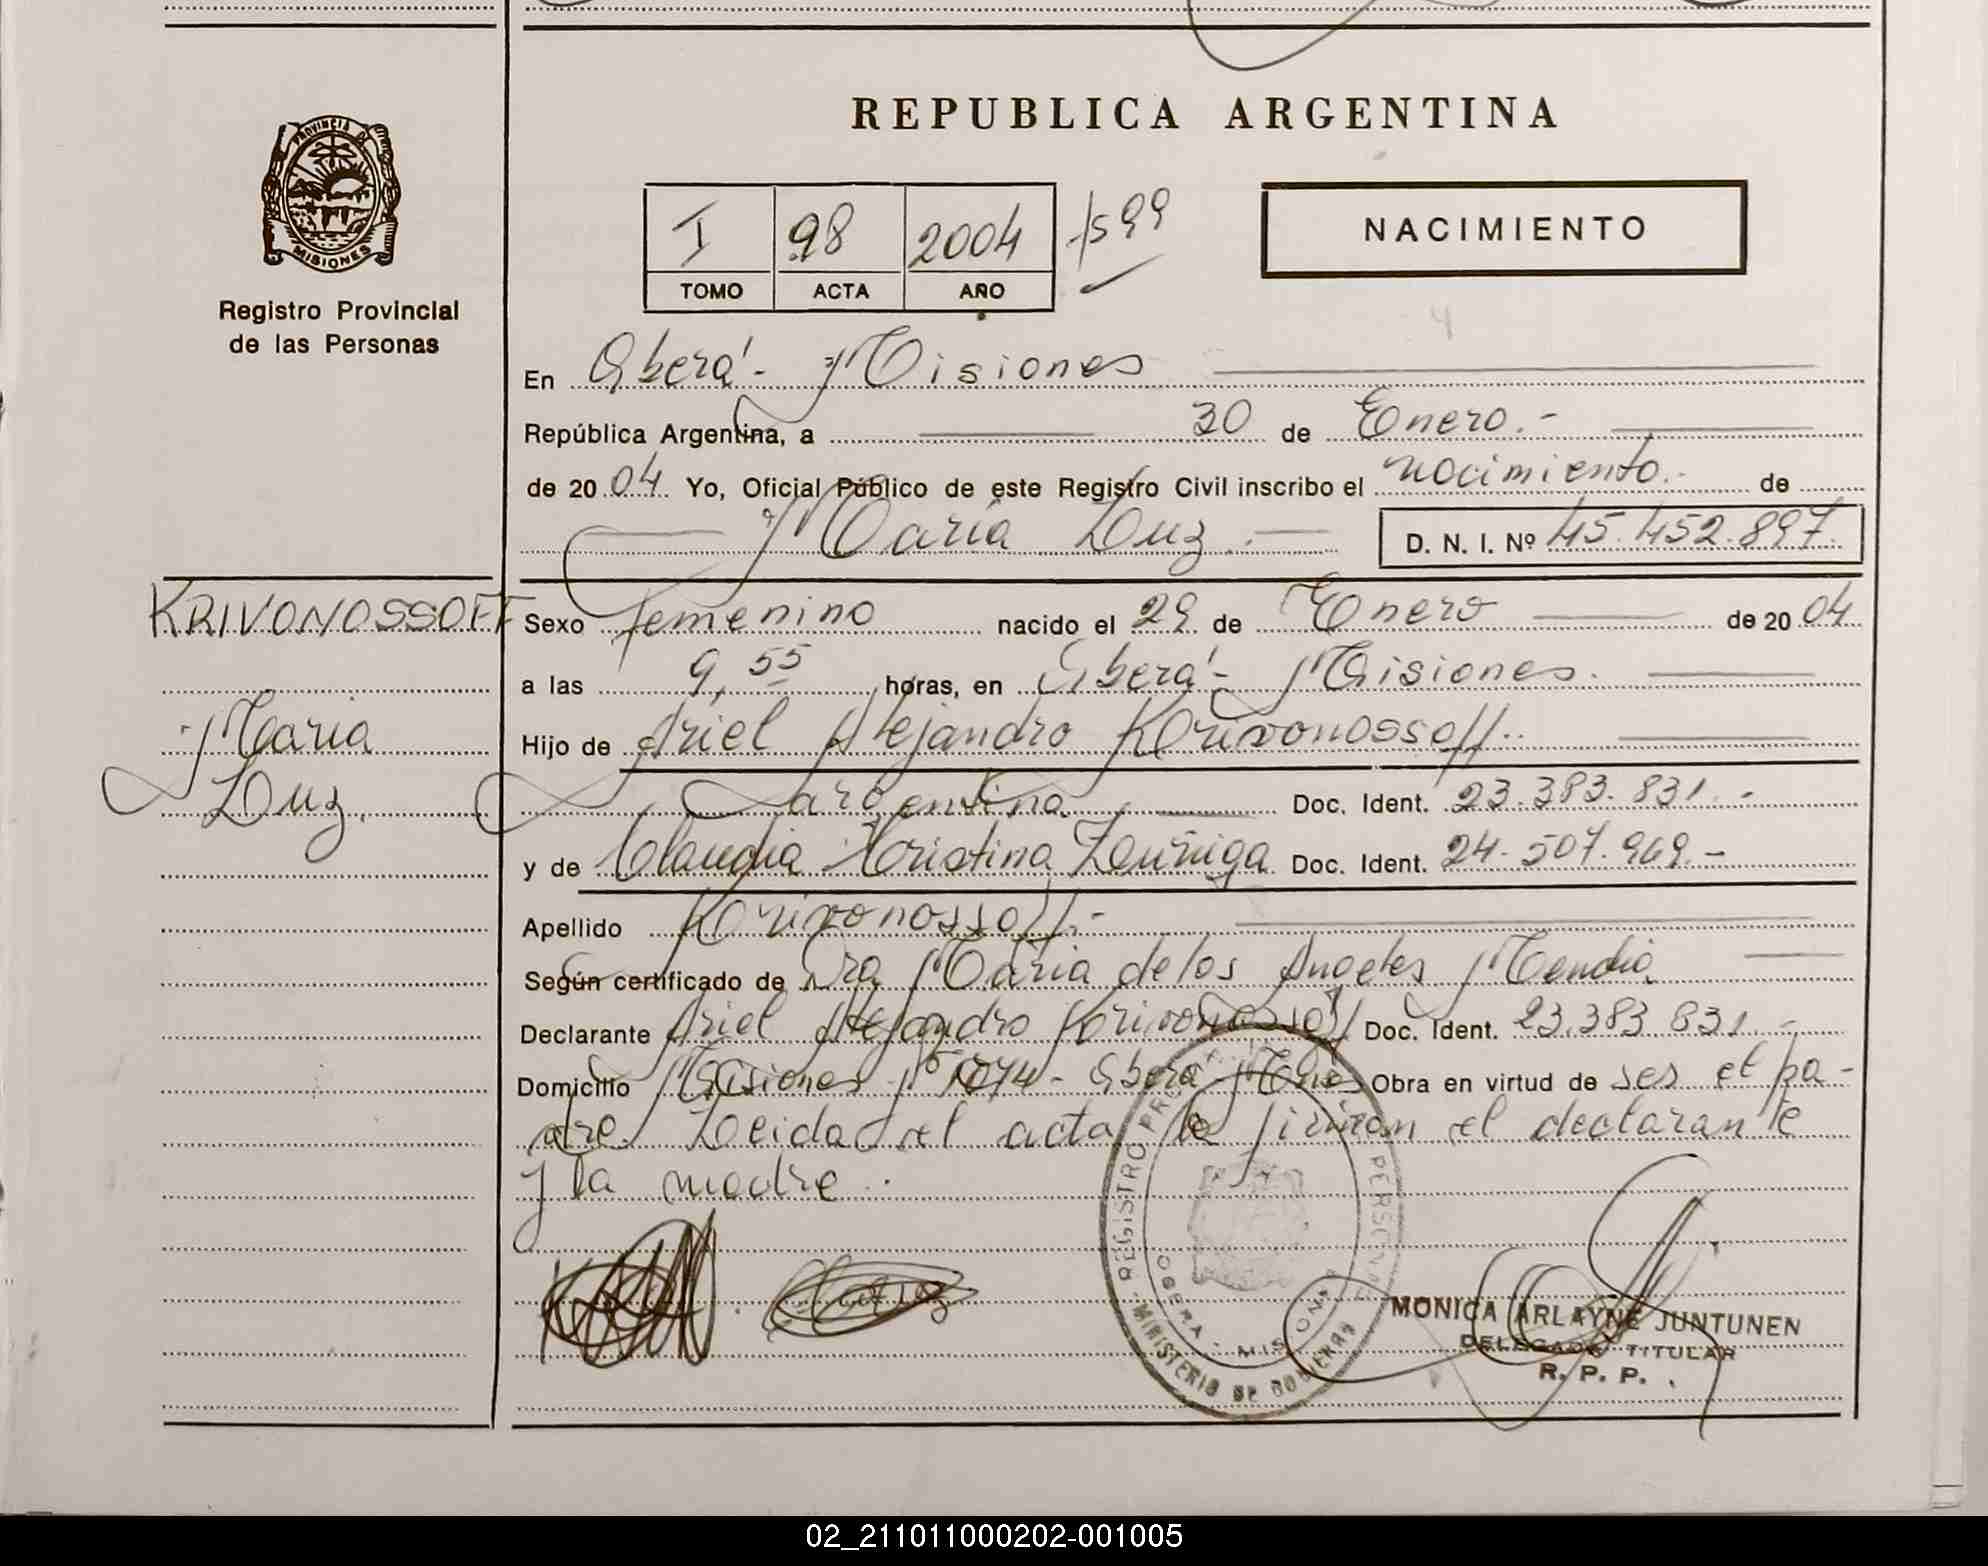 REPUBLICA ARGENTINA
PROVINCIA DE
MISIONES
Registro Provincial
de las Personas
I 98 2004
TOMO ACTA AÑO
NACIMIENTO
En Oberá - Misiones
República Argentina, a 30 de Enero.-
de 2004 Yo, Oficial Público de este Registro Civil inscribo el nacimiento.- de
María Luz.- D. N. I. Nº 45.452.897.
KRIVONOSSOFF
Maria
Luz.
Sexo femenino nacido el 29 de Enero de 2004
a las 9,55 horas, en Oberá - Misiones.
Hijo de Ariel Alejandro Krivonossoff.
argentina Doc. Ident. 23.383.831.-
y de Claudia Cristina Zuñiga Doc. Ident. 24.507.969.-
Apellido Krivonossoff.-
Según certificado de Dra Maria de los Angeles Mendia
Declarante Ariel Alejandro Krivonossoff Doc. Ident. 23.383.831.-
Domicilio Misiones Nº 1074 - Oberá Mnes Obra en virtud de ser el pa-
dre. Leida el acta la firman el declarante
y la madre.
REGISTRO PERSONAS
OBERA - MISIONES
MINISTERIO DE GOBIERNO
MONICA ARLAYNE JUNTUNEN
DELEGADA TITULAR
R. P. P.
02_211011000202-001005